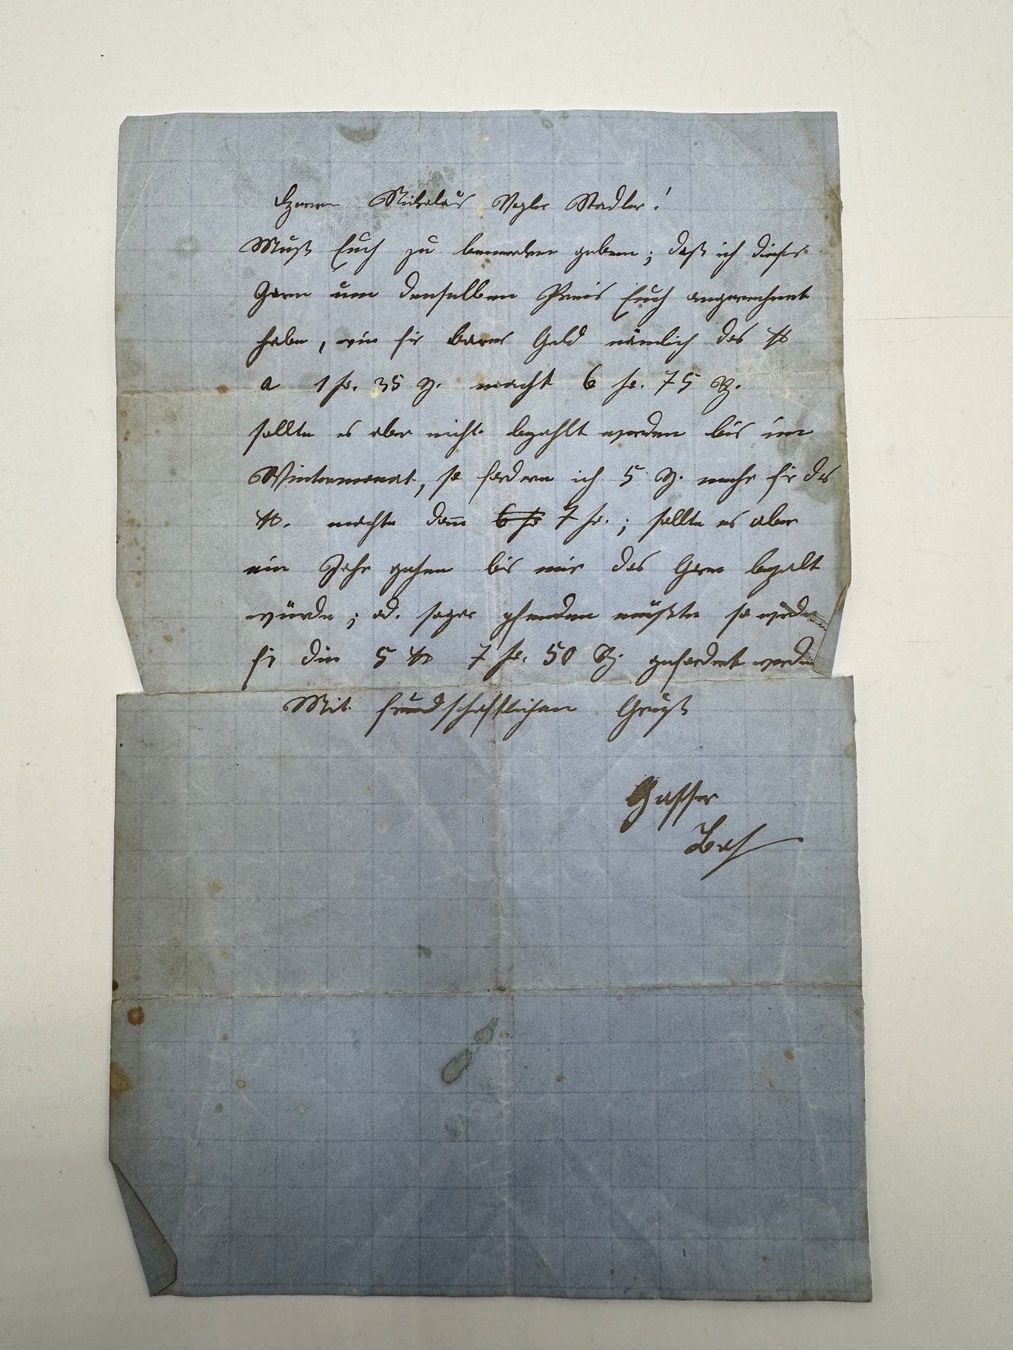 Herrn Nikolaus Vogler Stadler!
Muß Euch zu bemerken geben; daß ich dieses
Garn um denselben Preis Euch angerechnet
habe, wie für bares Geld nämlich das ℔
a 1 fr. 35 Rp. macht 6 fr. 75 Rp.
sollte es aber nicht bezahlt werden bis im
Wintermonat, so fordere ich 5 Rp. mehr für das
℔. machte dann 6 fr 7 fr.; sollte es aber
ein Jahr gehen bis mir das Garn bezalt
würde; od. sogar pfenden müßte so würde
für die 5 ℔ 7 fr. 50 Rp. gefordert werden
Mit freundschaftlichem Gruß
Gasser